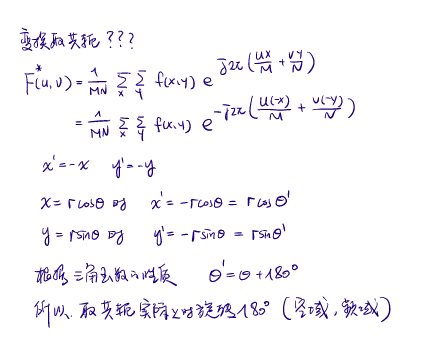 变换取共轭???
F*(u,v) = 1/MN Σx Σy f(x,y) e^{j2π(ux/M + vy/N)}
= 1/MN Σx Σy f(x,y) e^{-j2π(u(-x)/M + v(-y)/N)}
x'=-x y'=-y
x=rcosθ 时 x'=-rcosθ=rcosθ'
y=rsinθ 时 y'=-rsinθ=rsinθ'
根据三角函数的性质 θ'=θ+180°
所以, 取共轭实际上时旋转180° (空域,频域)